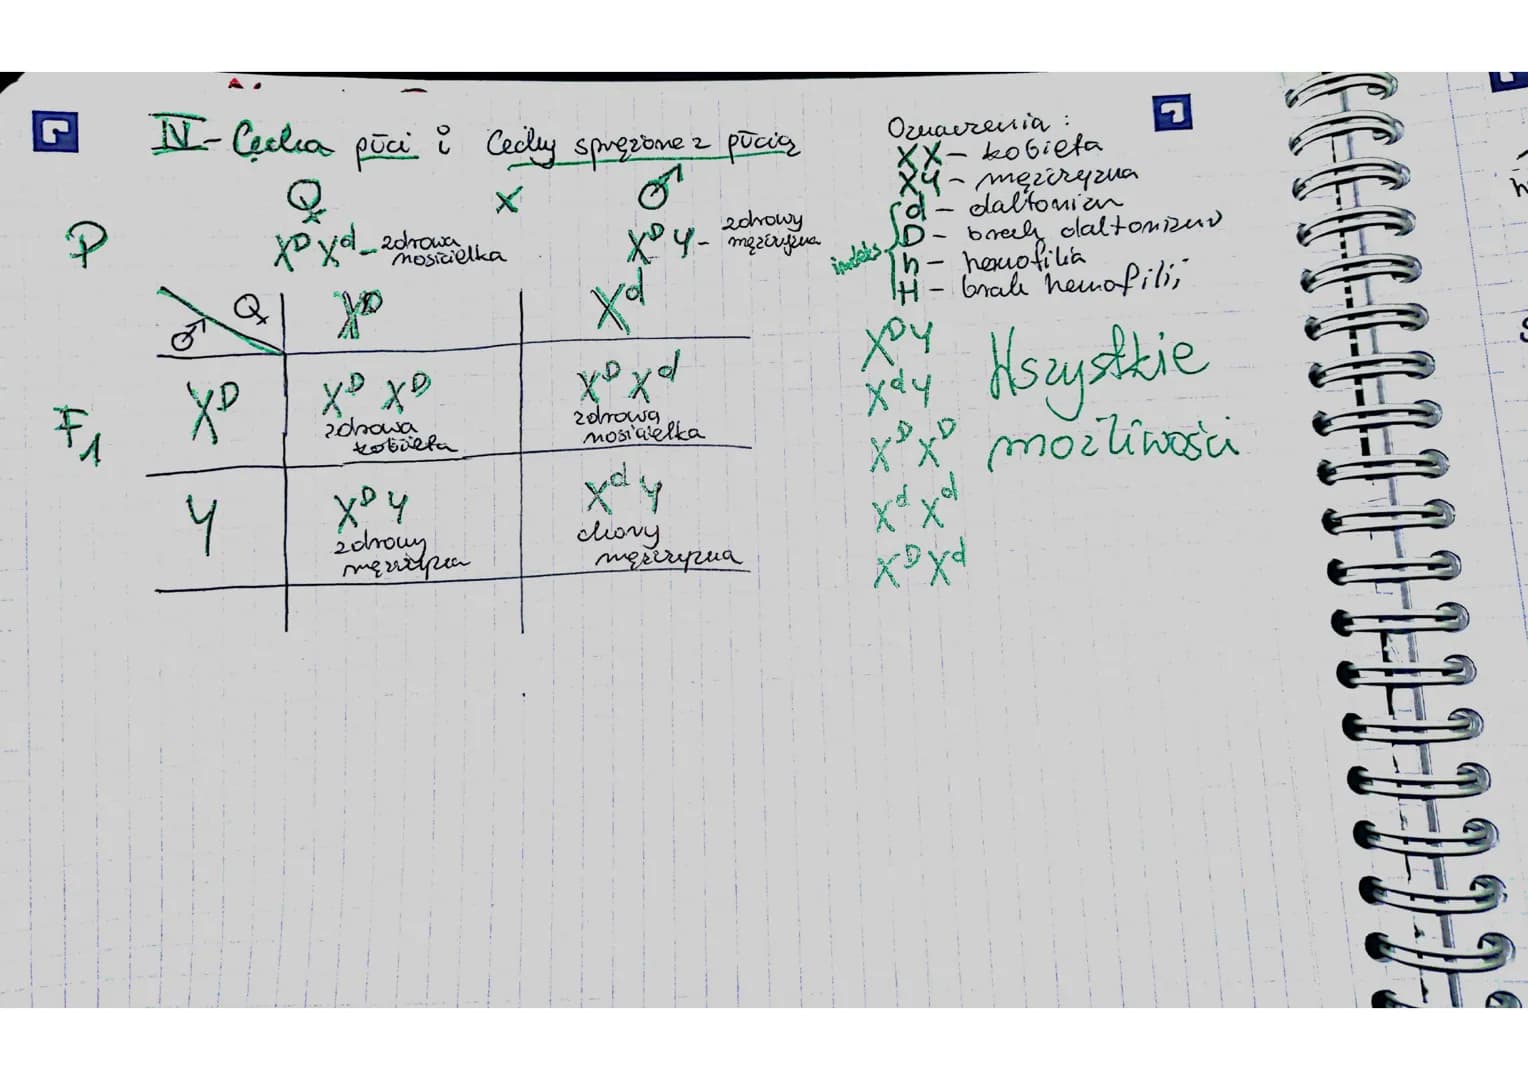 IV - Cecha płci i Cechy sprzężone z płcią
♀ x ♂
P XᴰXᵈ - zdrowa nosicielka XᴰY - zdrowy mężczyzna
♂ \ ♀ Xᴰ Xᵈ
F₁ Xᴰ XᴰXᴰ XᴰXᵈ
zdrowa kobieta zdrowa nosicielka
Y XᴰY XᵈY
zdrowy mężczyzna chory mężczyzna
Oznaczenia:
XX - kobieta
XY - mężczyzna
indeks
d - daltonizm
D - brak daltonizmu
h - hemofilia
H - brak hemofilii
XᴰY
XᵈY
XᴰXᴰ
XᵈXᵈ
XᴰXᵈ
Wszystkie
możliwości